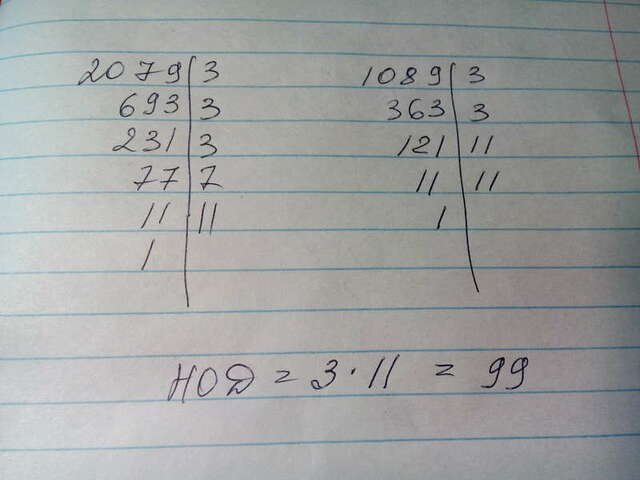 2079 3 1089 3
693 3 363 3
231 3 121 11
77 7 11 11
11 11 1
1
НОД = 3 · 11 = 99